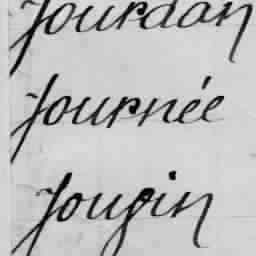 Jourdan
Journée
Jougin